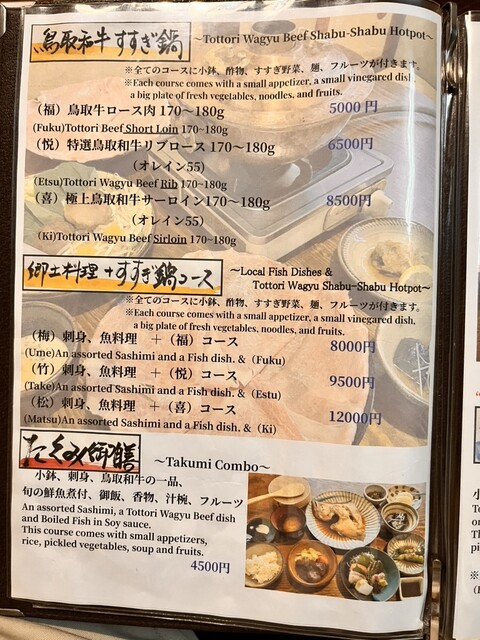 鳥取和牛すすぎ鍋 ～Tottori Wagyu Beef Shabu-Shabu Hotpot～
※全てのコースに小鉢、酢物、すすぎ野菜、麺、フルーツが付きます。
※Each course comes with a small appetizer, a small vinegared dish,
a big plate of fresh vegetables, noodles, and fruits.
（福）鳥取牛ロース肉 170～180g 5000 円
(Fuku)Tottori Beef Short Loin 170~180g
（悦）特選鳥取和牛リブロース 170～180g 6500円
（オレイン55）
(Etsu)Tottori Wagyu Beef Rib 170~180g
（喜）極上鳥取和牛サーロイン170～180g 8500円
（オレイン55）
(Ki)Tottori Wagyu Beef Sirloin 170~180g
郷土料理＋すすぎ鍋コース ～Local Fish Dishes &
Tottori Wagyu Shabu-Shabu Hotpot～
※全てのコースに小鉢、酢物、すすぎ野菜、麺、フルーツが付きます。
※Each course comes with a small appetizer, a small vinegared dish,
a big plate of fresh vegetables, noodles, and fruits.
（梅）刺身、魚料理 ＋（福）コース 8000円
(Ume)An assorted Sashimi and a Fish dish. & (Fuku)
（竹）刺身、魚料理 ＋（悦）コース 9500円
(Take)An assorted Sashimi and a Fish dish. & (Estu)
（松）刺身、魚料理 ＋（喜）コース 12000円
(Matsu)An assorted Sashimi and a Fish dish. & (Ki)
たくみ御膳 ～Takumi Combo～
小鉢、刺身、鳥取和牛の一品、
旬の鮮魚煮付、御飯、香物、汁椀、フルーツ
An assorted Sashimi, a Tottori Wagyu Beef dish
and Boiled Fish in Soy sauce.
This course comes with small appetizers,
rice, pickled vegetables, soup and fruits.
4500円